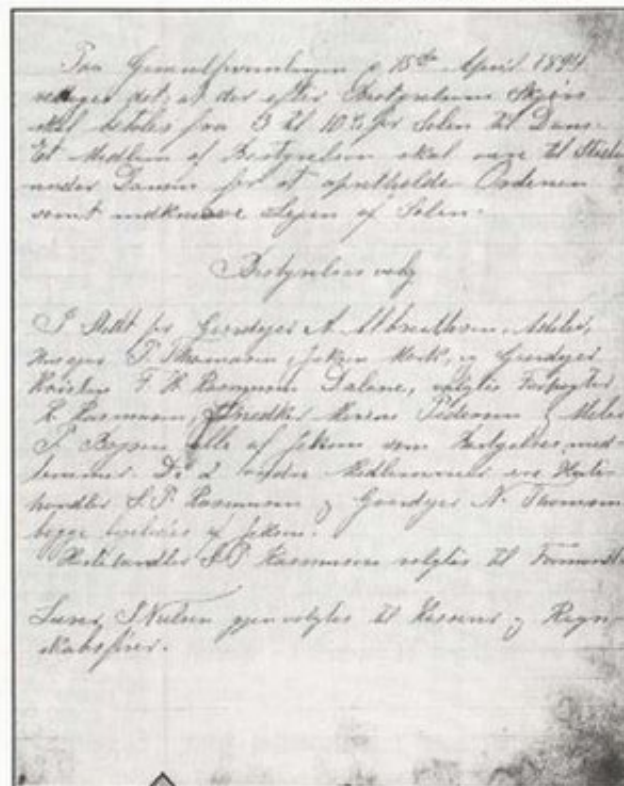 Paa Generalforsamlingen d. 15de April 1894
vedtoges det, at der efter Bestyrelsens Skjøn
skal betales fra 5 til 10 Kr for Salen til Dans.
Et Medlem af Bestyrelsen skal være til Stede
under Dansen for at opretholde Ordenen
samt indkræve Lejen af Salen.
Bestyrelses valg
I Stedet for Gaardejer A. Albrechtsen,
Husejer P. Thomasen, og Gaardejer
F. H. Rasmussen Dalene, valgtes Forpagter
Rasmussen, Snedker Pedersen &
J. Boysen alle af som Bestyrelsesmed-
lemmer. De 2 andre Medlemmer ere
handler S. P. Rasmussen & Gaardejer N. Thomsen
begge af
handler S. P. Rasmussen valgtes til Formand
Lærer J. Nielsen gjenvalgtes til Kasserer & Regn-
skabsfører.